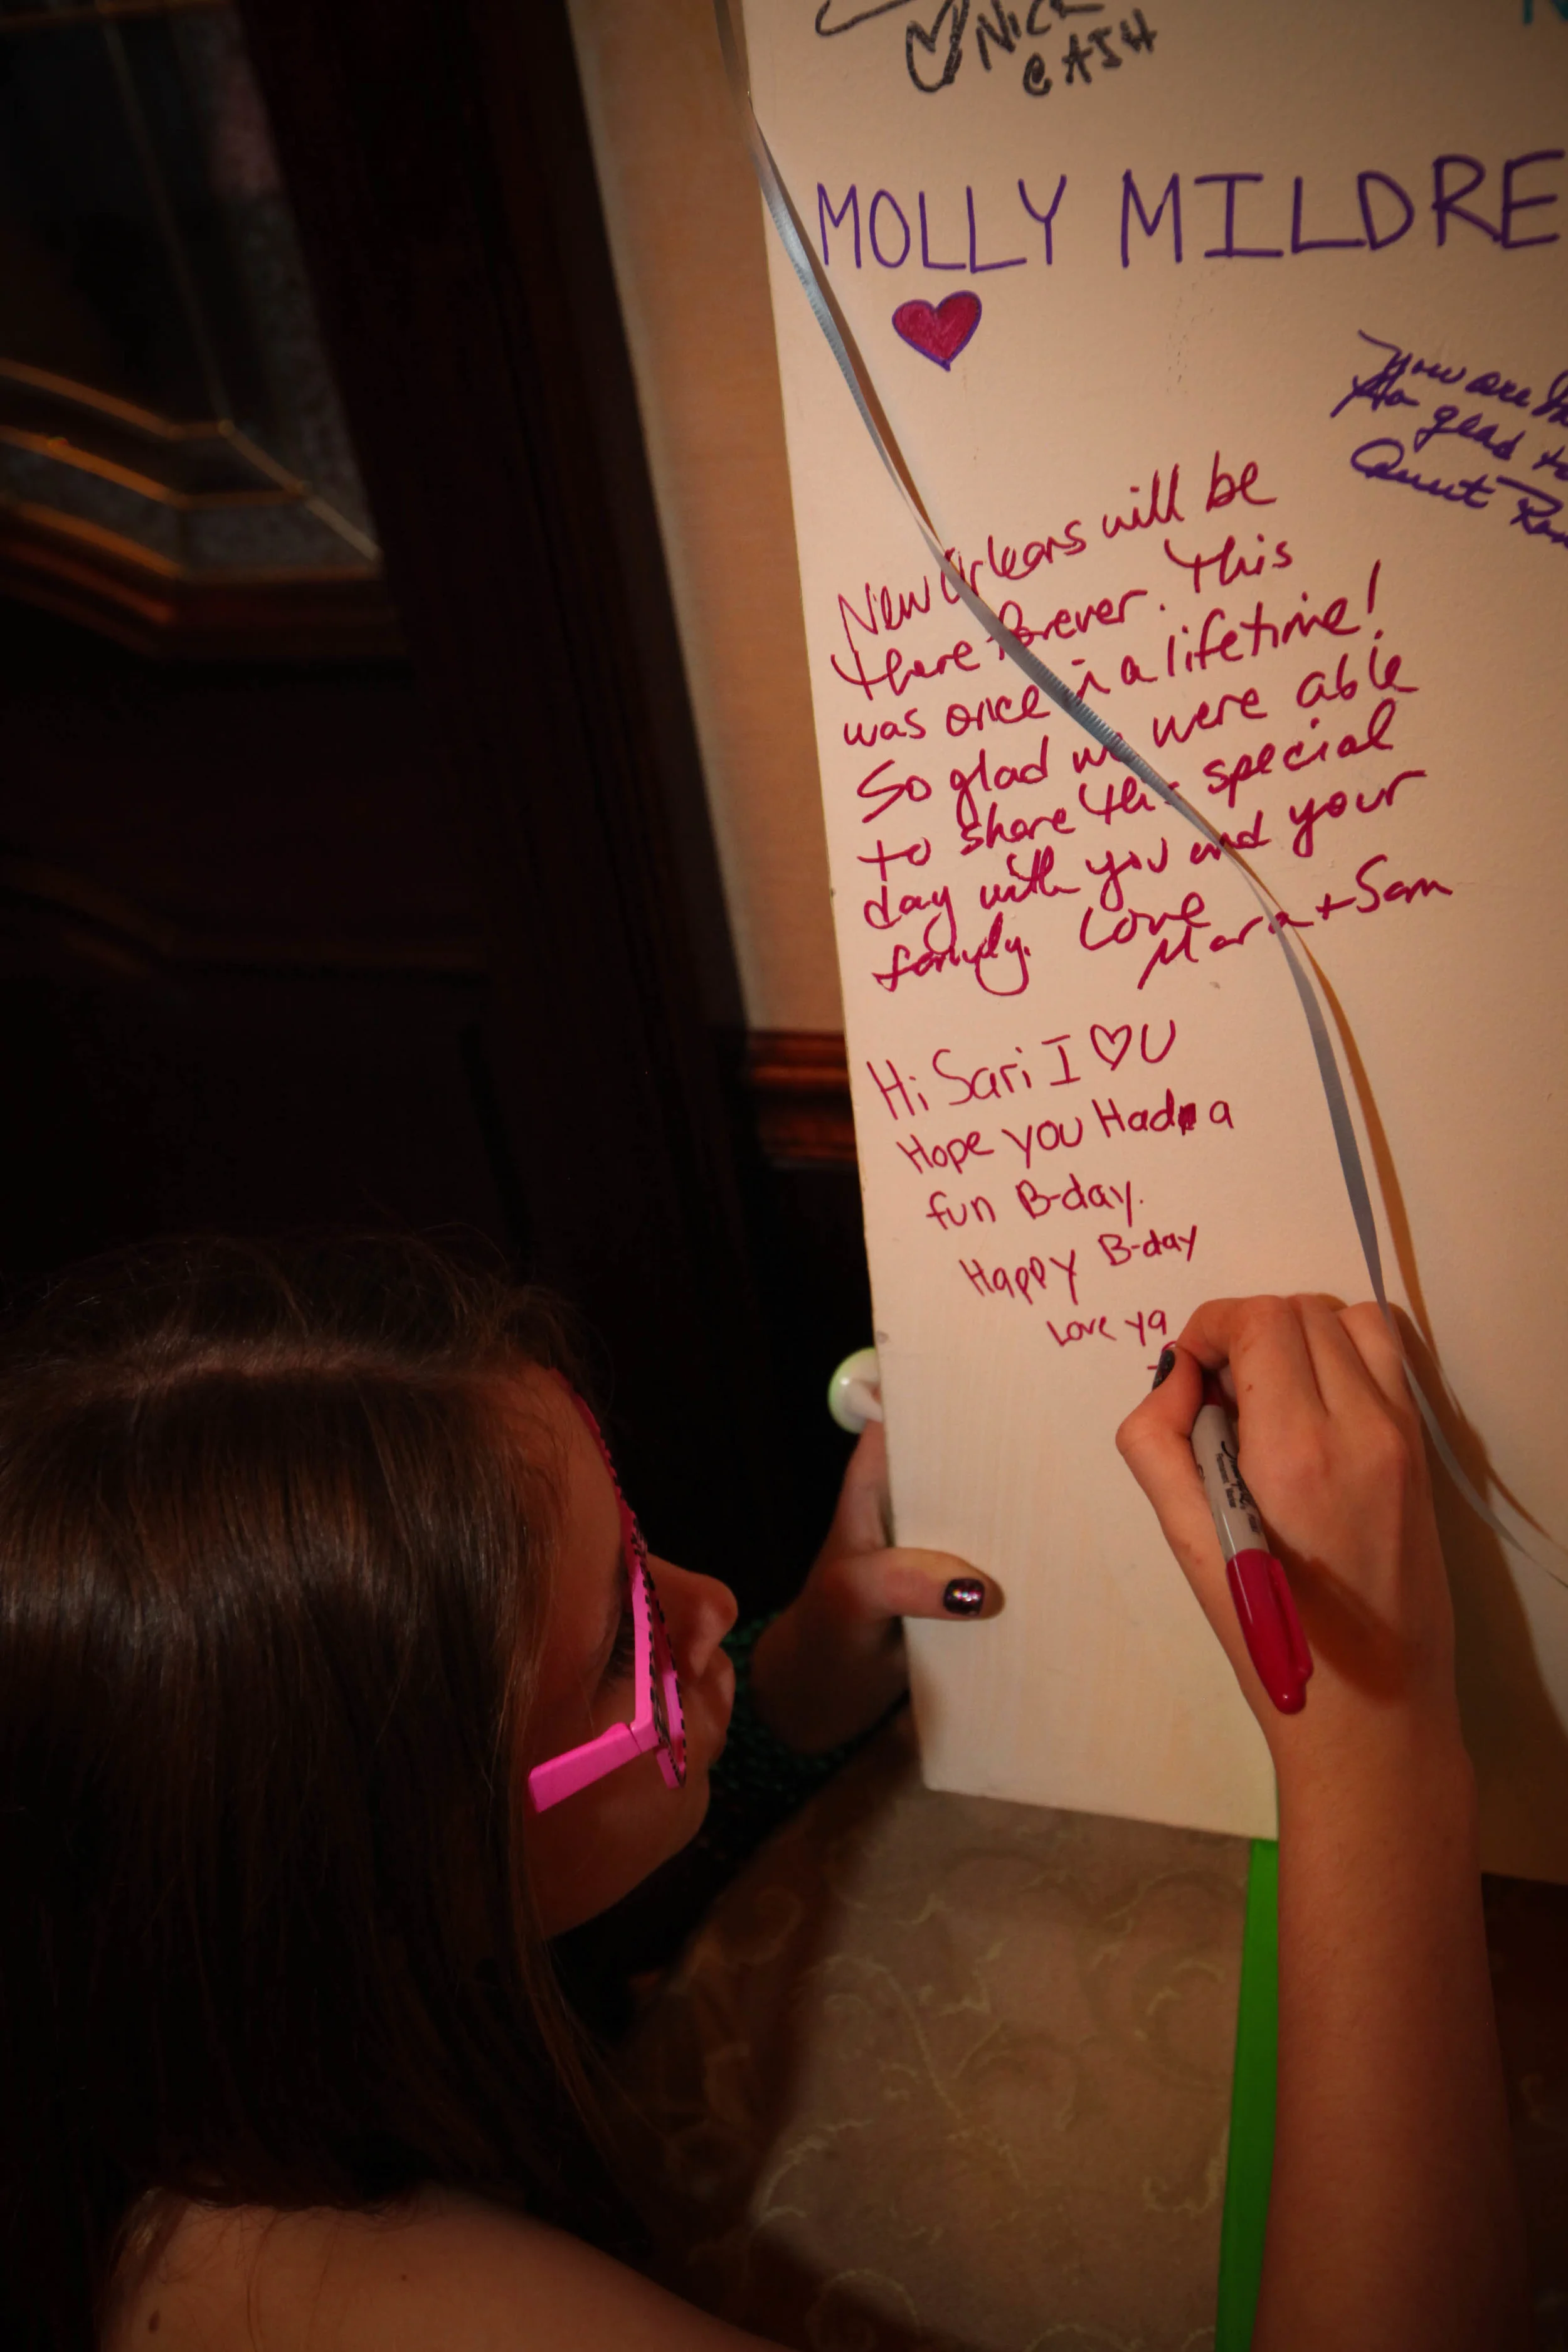 NICK
CASH
MOLLY MILDRE
you are
So glad to
Aunt
New Orleans will be
there forever. This
was once in a lifetime!
So glad we were able
to share this special
day with you and your
family. Love
Mara + Sam
Hi Sari I ♡ U
Hope you Had a
fun B-day.
Happy B-day
Love ya